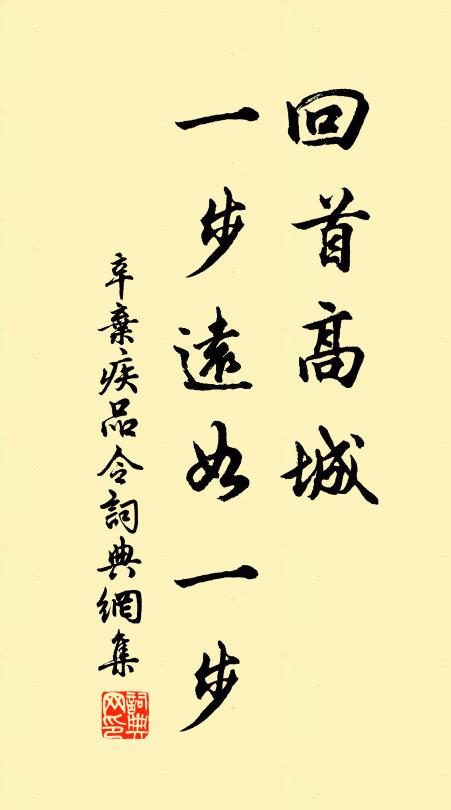 回首高城
一步遠如一步
辛棄疾品令詞典網集
詞典网印